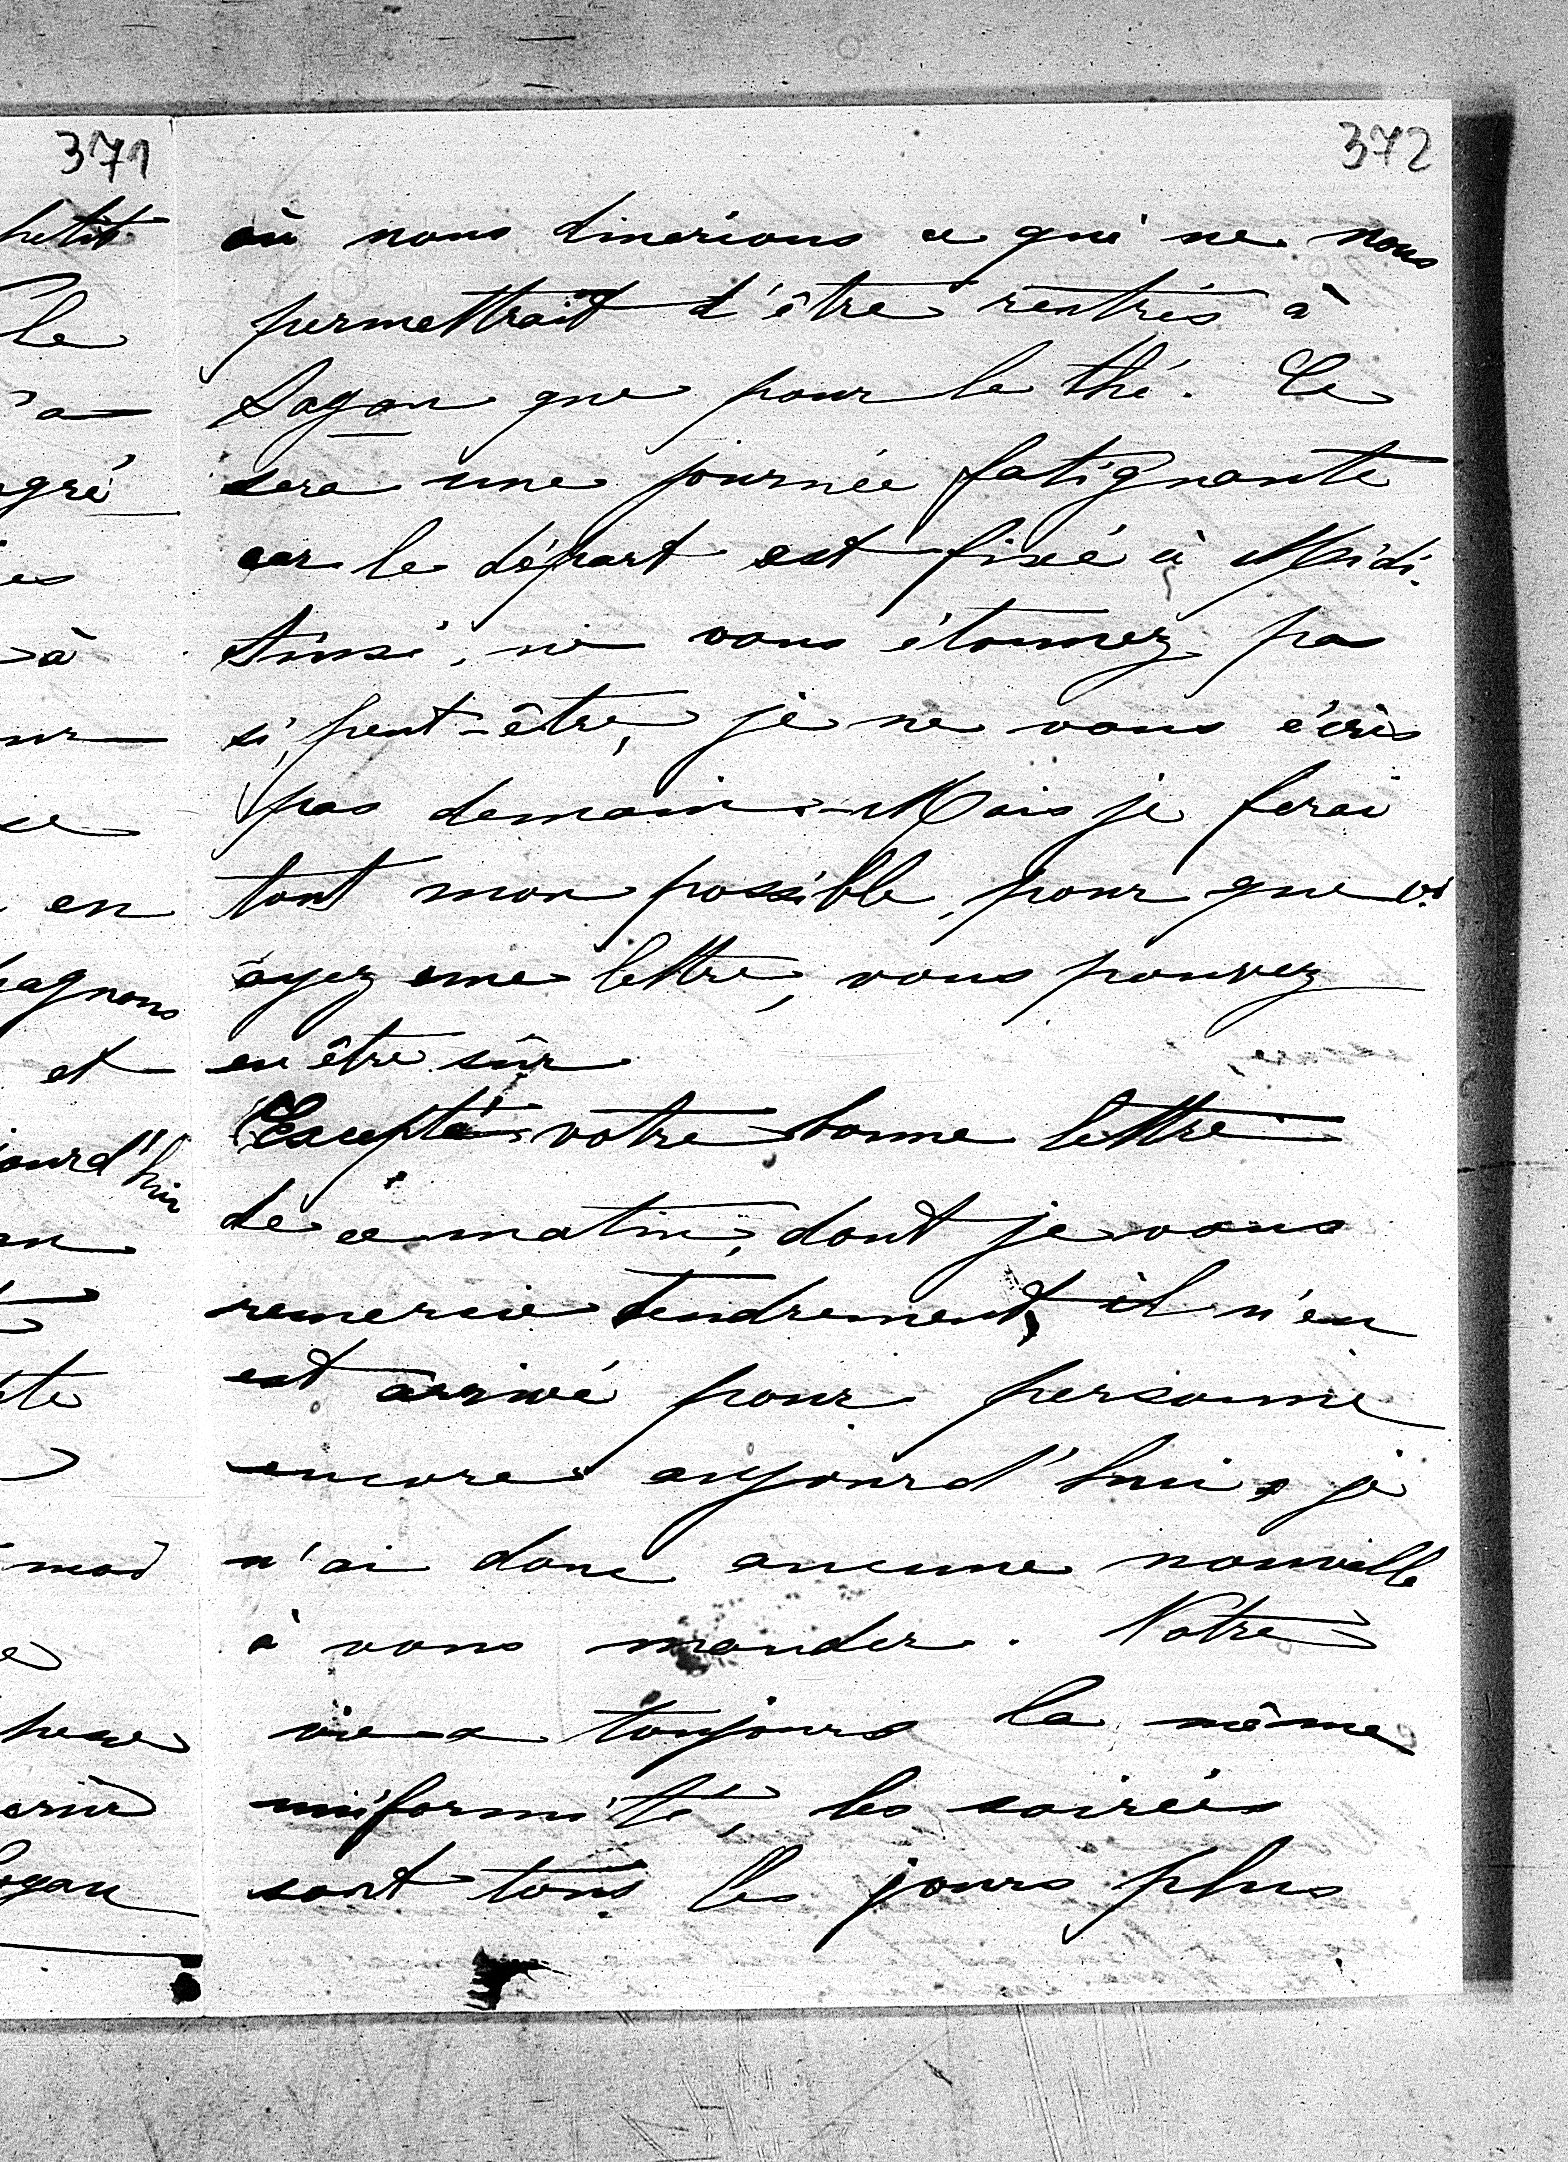 371
petit
le
'a
agré
es
à
ur
se
en
pagnons
et
jourd'hui
an
te
moi
372
où nous dinerions ce qui ne nous
permettrait d'être rentrés à
Sagan que pour le thé. Ce
sera une journée fatignante
car le départ est fixé à Midi.
Ainsi, ne vous étonnez pas
si, peut-être, je ne vous écris
pas demain. - Mais je ferai
tout mon possible, pour que vs
ayez une lettre, vous pouvez
en être sûr
Excepté votre bonne lettre
de ce matin, dont je vous
remercie tendrement, il n'en
est arrivé pour personne
encore aujourd'hui, je
n'ai donc aucune nouvelle
à vous mander. Notre
vie a toujours la même
uniformité, les soirées
sont tous les jours plus